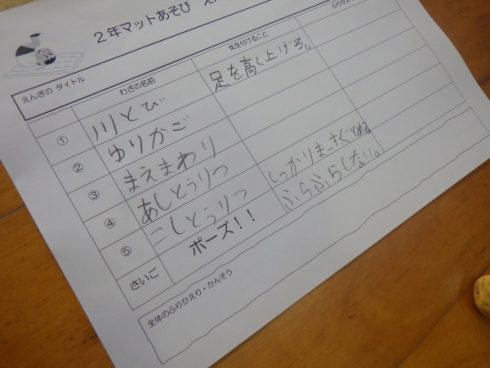 2年マットあそび
えんぎの タイトル
わざの名前
気を付けること
① 川とび 足を高く上げる。
② ゆりかご
③ まえまわり
④ あしとうりつ しっかりまっすぐとめる
⑤ こしとうりつ ふらふらしない。
さいご ポーズ!!
全体のふりかえり・かんそう